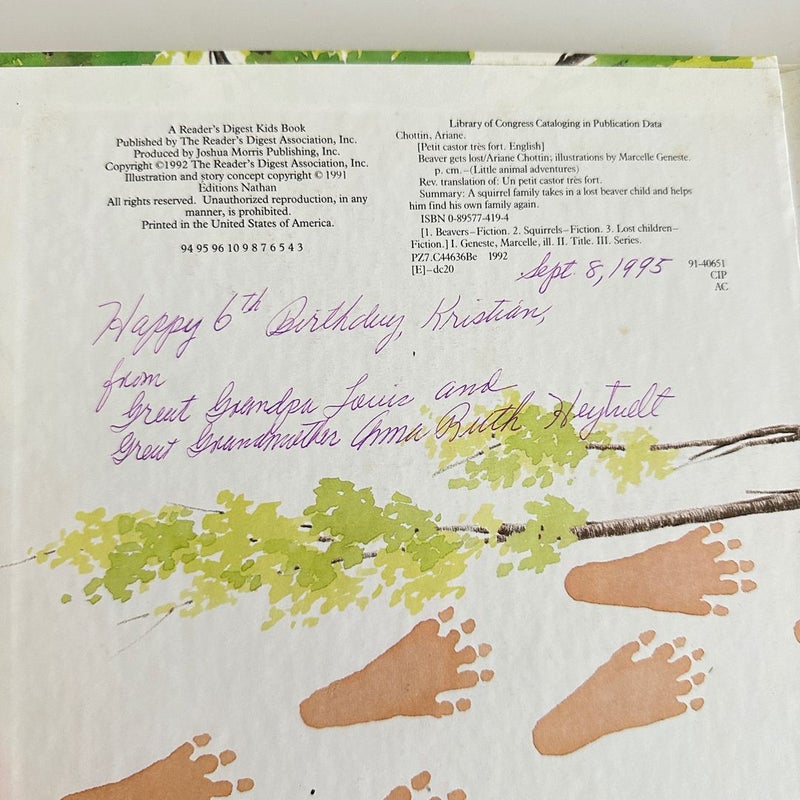 A Reader's Digest Kids Book
Published by The Reader's Digest Association, Inc.
Produced by Joshua Morris Publishing, Inc.
Copyright ©1992 The Reader's Digest Association, Inc.
Illustration and story concept copyright © 1991
Editions Nathan
All rights reserved. Unauthorized reproduction, in any
manner, is prohibited.
Printed in the United States of America.
94 95 96 10 9 8 7 6 5 4 3
Library of Congress Cataloging in Publication Data
Chottin, Ariane.
[Petit castor très fort. English]
Beaver gets lost/Ariane Chottin; illustrations by Marcelle Geneste.
p. cm.–(Little animal adventures)
Rev. translation of: Un petit castor très fort.
Summary: A squirrel family takes in a lost beaver child and helps
him find his own family again.
ISBN 0-89577-419-4
[1. Beavers–Fiction. 2. Squirrels–Fiction. 3. Lost children–
Fiction.] I. Geneste, Marcelle, ill. II. Title. III. Series.
PZ7.C44636Be 1992
[E]–dc20
91-40651
CIP
AC
Sept. 8, 1995
Happy 6th Birthday, Kristian,
from
Great Grandpa Louis and
Great Grandmother Anna Ruth